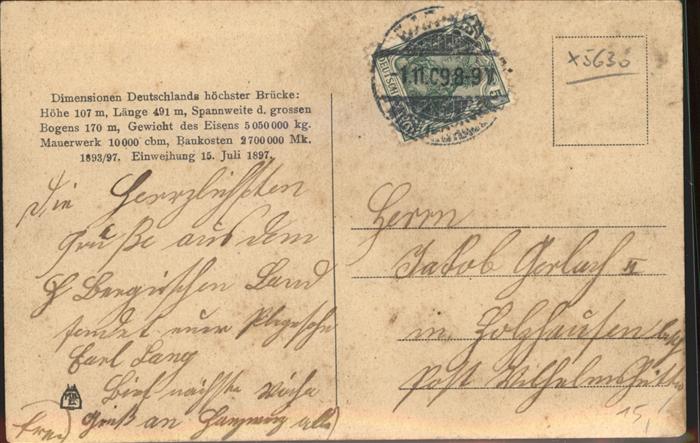 Dimensionen Deutschlands höchster Brücke:
Höhe 107 m, Länge 491 m, Spannweite d. grossen
Bogens 170 m, Gewicht des Eisens 5 050 000 kg.
Mauerwerk 10 000 cbm, Baukosten 2 700 000 Mk.
1893/97. Einweihung 15. Juli 1897.
Die Herzlichsten
Grüße aus dem
Bergischen Land
sendet euer
Carl Lang
Brief nächste Woche
Gruß an alle
1.11.09.8-9V.
DEUTSCH
x5630
Herrn
Jakob Gerlach II
in Holzhausen
Post Wilhelmshütte
15,